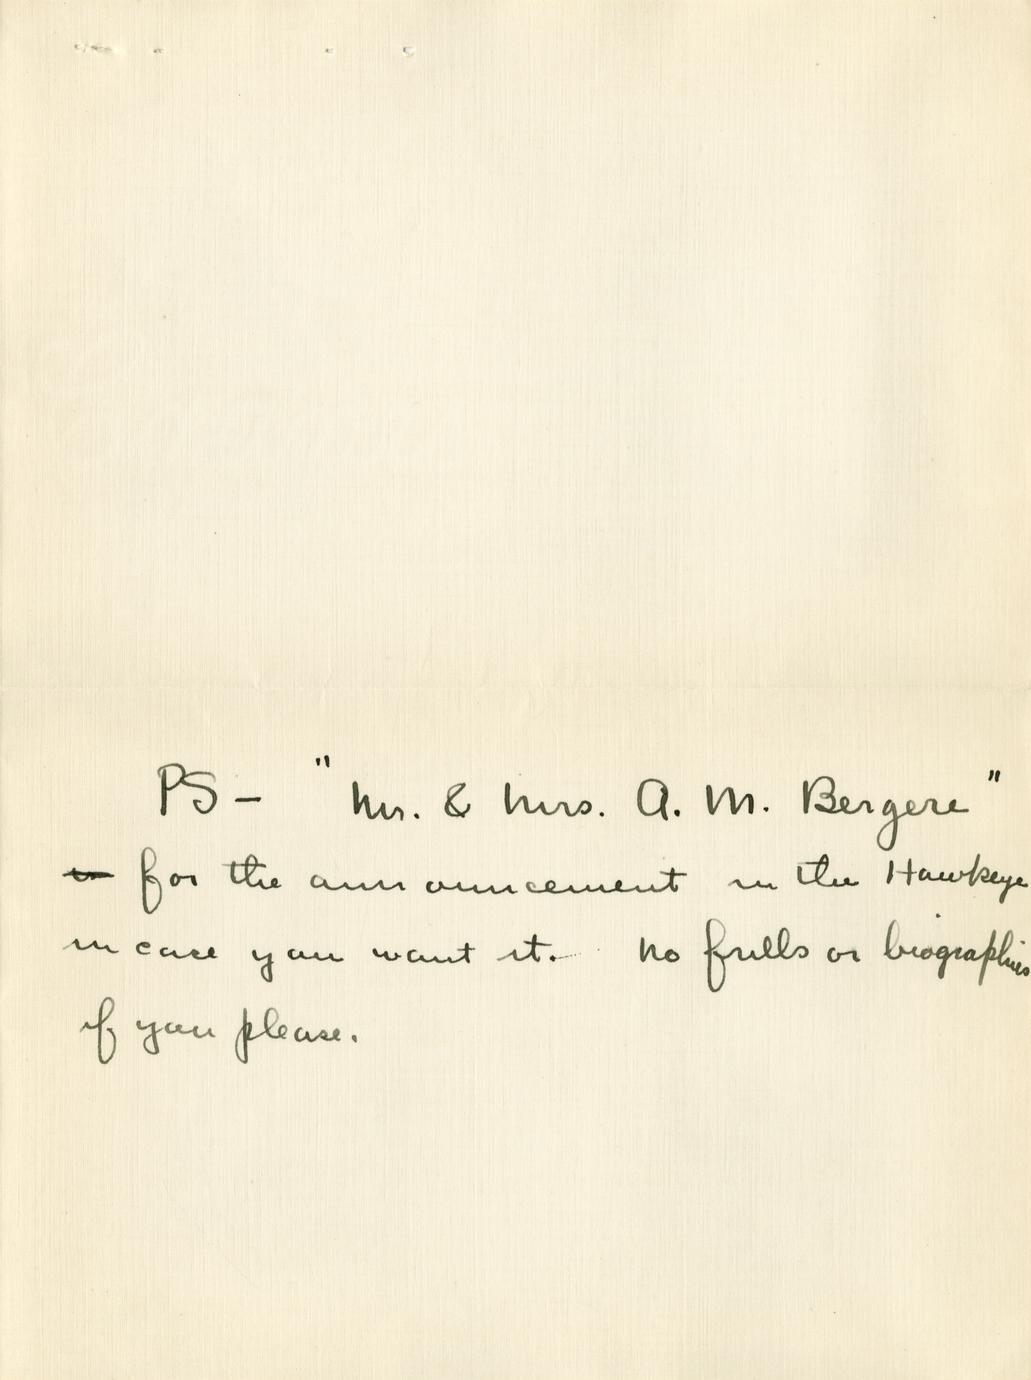 PS - "Mr. & Mrs. A. M. Bergere"
for the announcement in the Hawkeye
in case you want it. No frills or biographies
if you please.